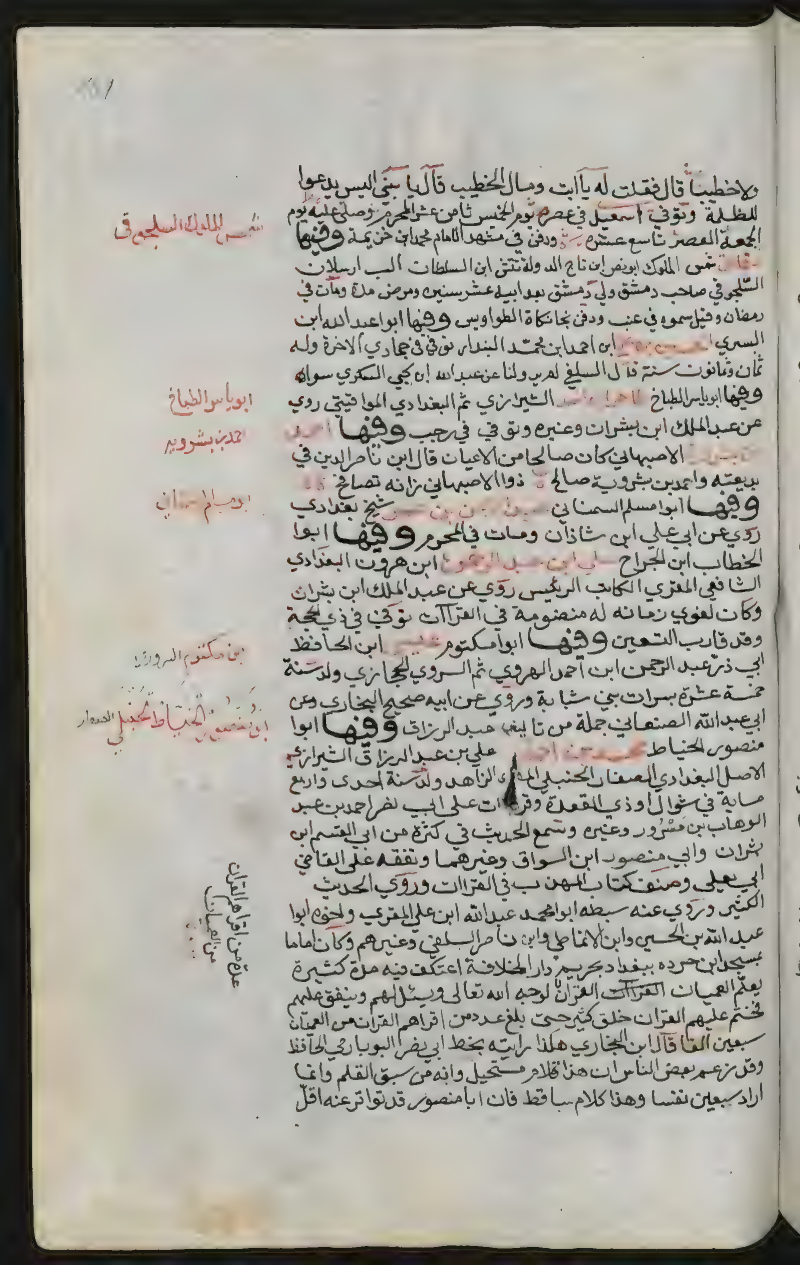 ولا خطيبا قال فقلت له يا ابت ومال الخطيب قال يا بني اليس يدعوا
للظلمة وتوفي اسمعيل في عصر يوم الخميس ثامن عشر المحرم وصلى عليه يوم
الجمعة العصر تاسع عشره ودفن في مشهد الامام محمد ابن خزيمة وفيها
شمس الملوك ابو نصر ابن تاج الدولة تتش ابن السلطان الب ارسلان
السلجوقي صاحب دمشق ولي دمشق بعد ابيه عشر سنين ومرض مدة ومات في
رمضان وقيل سموه في عنب ودفن بخانكاة الطواويس وفيها ابو عبد الله ابن
السري ابن احمد ابن محمد البندار توفي في جمادي الاخرة وله
ثمان وثمانون سنة قال السلفي لم يرو لنا عن عبد الله ابن يحيى السكري سواه
وفيها ابو ياسر الطباخ الشيرازي ثم البغدادي المواقيتي روي
عن عبد الملك ابن بشران وغيره وتوفي في رجب وفيها
الاصبهاني كان صالحا من الاعيان قال ابن ناصر الدين في
بديعته واحمد بن بشروية صالح ذوا الاصبهاني زانه تصافح
وفيها ابو مسلم السمناني شيخ بغدادي
روي عن ابي علي ابن شاذان ومات في المحرم وفيها ابوا
الخطاب ابن الجراح علي ابن عبد الرحمن ابن هرون البغدادي
الشافعي المقري الكاتب الرئيس روي عن عبد الملك ابن بشران
وكان لغوي زمانه له منضومة في القراآت توفي في ذي الحجة
وقد قارب التسعين وفيها ابوا مكتوم عيسى ابن الحافظ
ابي ذر عبد الرحمن ابن احمد الهروي ثم السروي الحجازي ولد سنة
خمسة عشرة بسرات بني شبابة وروي عن ابيه صحيح البخاري وعن
ابي عبد الله الصنعاني جملة من تاليف عبد الرزاق وفيها ابوا
منصور الخياط محمد بن احمد علي بن عبد الرزاق الشيرازي
الاصل البغدادي الصفار الحنبلي الزاهد ولد سنة احدى واربع
ماية في شوال او ذي القعدة وقرا على ابي نصر احمد بن عبد
الوهاب بن مسرور وغيره وسمع الحديث في كثرة من ابي القسم ابن
بشران وابي منصور ابن السواق وغيرهما وتفقه على القاضي
ابي يعلى وصنف كتاب المهذب في القراات وروي الحديث
الكثير وروي عنه سبطه ابو محمد عبد الله ابن علي المقري واخوه ابوا
عبد الله بن الحسين وابن الانماطي وابن ناصر السلفي وغيرهم وكان اماما
بمسجد ابن جرده ببغداد بحريم دار الخلافة اعتكف فيه مدة كثيرة
يعلم العميان القرآن لوجه الله تعالى ويسئل لهم وينفق عليهم
فختم عليهم القران خلق كثير حتى بلغ عدد من اقراهم القران من العميان
سبعين الفا قال ابن النجاري هكذا رايته بخط ابي نصر اليوبارتي الحافظ
وقد زعم بعض الناس ان هذا كلام مستحيل وانه من سبق القلم وانما
اراد سبعين نفسا وهذا كلام ساقط فان ابا منصور قد تواتر عنه اقل
شمس الملوك السلجوقي
ابو ياسر الطباخ
احمد بن بشرويه
ابن مكتوم
ابو منصور الخياط الحنبلي الصفار
عدة من اقراهم القران
من العميان